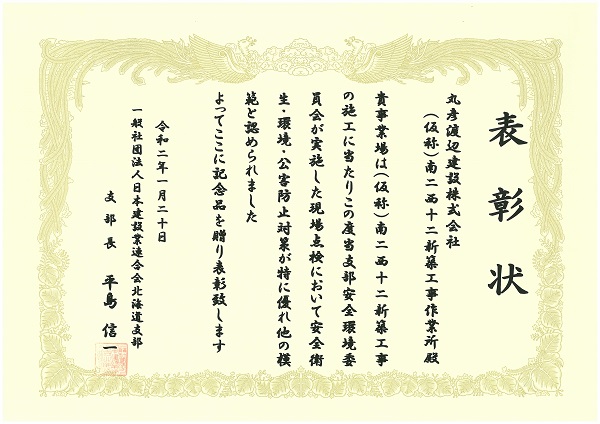 表彰状
丸彦渡辺建設株式会社
(仮称)南二西十二新築工事作業所殿
貴事業場は(仮称)南二西十二新築工事
の施工に当たりこの度当支部安全環境委
員会が実施した現場点検において安全衛
生・環境・公害防止対策が特に優れ他の模
範と認められました
よってここに記念品を贈り表彰致します
令和二年一月二十日
一般社団法人日本建設業連合会北海道支部
支部長 平島信一